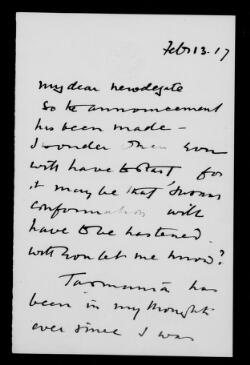 Feb 13. 17
My dear Newdegate
So the announcement
has been made —
I wonder when you
will have to start for
it may be that
conformation will
have to be hastened.
Will you let me know?
Tasmania has
been in my thoughts
ever since I was